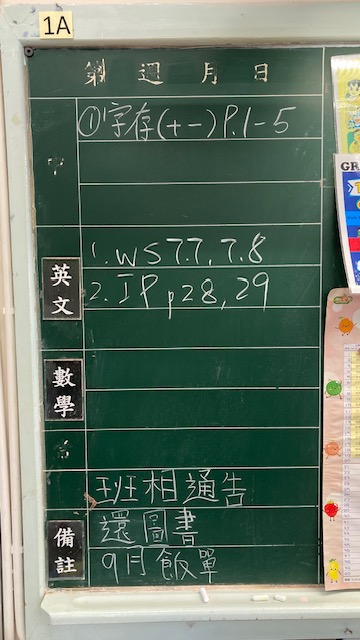 1A
第 週 月 日
中
①字存(十一) P.1-5
英文
1. WS 7.7, 7.8
2. IP p28, 29
數學
班相通告
備註
還圖書
9月飯單
GR